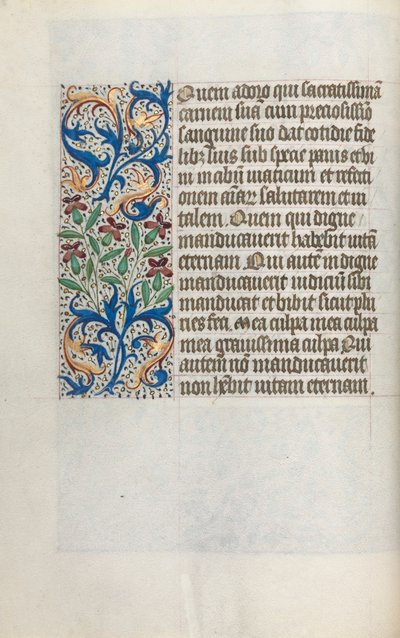 Quem adoro qui sacratissimā
carnem suā cum preciosissīo
sanguine suo dat cotidie fide
libꝫ suis sub specie panis et vi
ni in abū viaticum et refecti
onem aīaꝝ salutarem et vi
talem. Quem qui digne
manducaverit habebit vitā
eternam Qui autē indigne
manducaverit iudiciū sibi
manducat et bibit sicut plu
ries feci. Mea culpa mea culpa
mea gravissima culpa Qui
autem nō manducaverit
non hēbit vitam eternam.